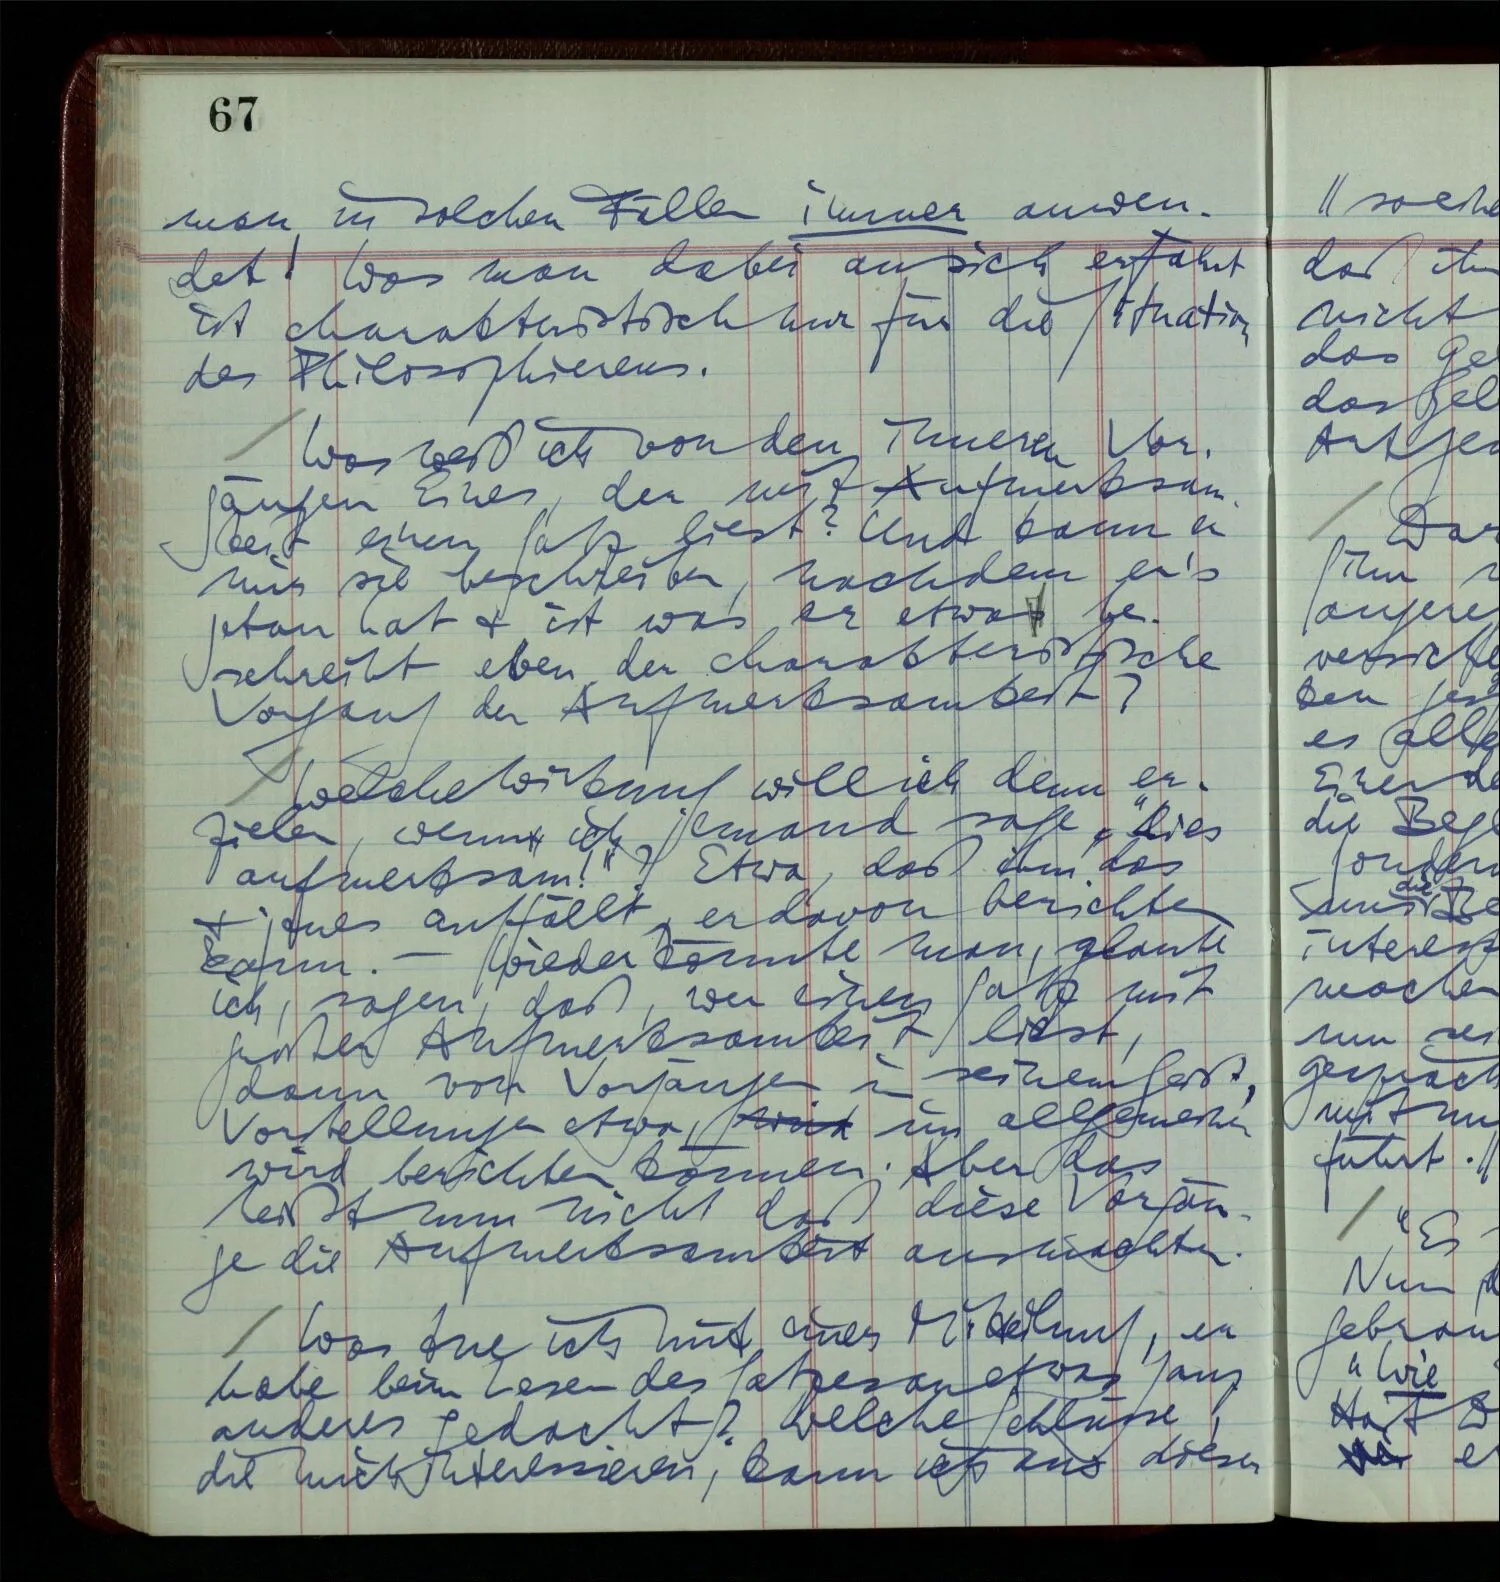 67
man in solchen Fällen immer anwen-
det! Was man dabei an sich erfährt
ist charakteristisch nur für die Situation
des Philosophierens.
/ Was weiß ich von den inneren Vor-
gängen Eines, der mit Aufmerksam-
keit einen Satz liest? Und kann er
mir sie beschreiben, nachdem er's
getan hat & ist was er etwa be-
schreibt eben der charakteristische
Vorgang der Aufmerksamkeit?
/ Welche Wirkung will ich denn er-
zielen, wenn ich jemand sage „Lies
aufmerksam!"? Etwa, daß ihm das
& jenes auffällt, er davon berichten
kann. – Wieder könnte man, glaube
ich, sagen, daß, wer einen Satz mit
großer Aufmerksamkeit liest,
dann von Vorgängen in seinem Geist,
Vorstellungen etwa, wird im allgemeinen
wird berichten können. Aber das
heißt nun nicht daß diese Vorgän-
ge die Aufmerksamkeit ausmachten.
/ Was tue ich mit einer Mitteilung, er
habe beim Lesen des Satzes an etwas ganz
anderes gedacht? Welche Schlüsse,
die mich interessieren, kann ich aus dieser
// solche
daß ihm
nicht
das
das
/
es alle
die
die
macher
nun
gespräch
führt. //
/ „Es
Nun
„Wie
Hast